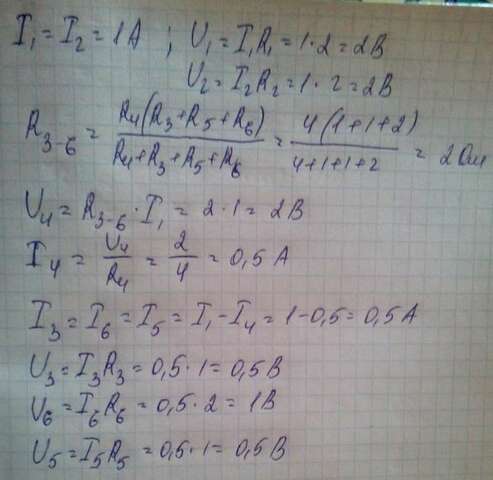 I₁ = I₂ = 1A ; U₁ = I₁R₁ = 1·2 = 2В
U₂ = I₂R₂ = 1·2 = 2В
R₃₋₆ = R₄(R₃+R₅+R₆) / R₄+R₃+R₅+R₆ = 4(1+1+2) / 4+1+1+2 = 2 Ом
U₄ = R₃₋₆ · I₁ = 2·1 = 2В
I₄ = U₄ / R₄ = 2 / 4 = 0,5 A
I₃ = I₆ = I₅ = I₁ - I₄ = 1-0,5 = 0,5 A
U₃ = I₃R₃ = 0,5·1 = 0,5В
U₆ = I₆R₆ = 0,5·2 = 1В
U₅ = I₅R₅ = 0,5·1 = 0,5В